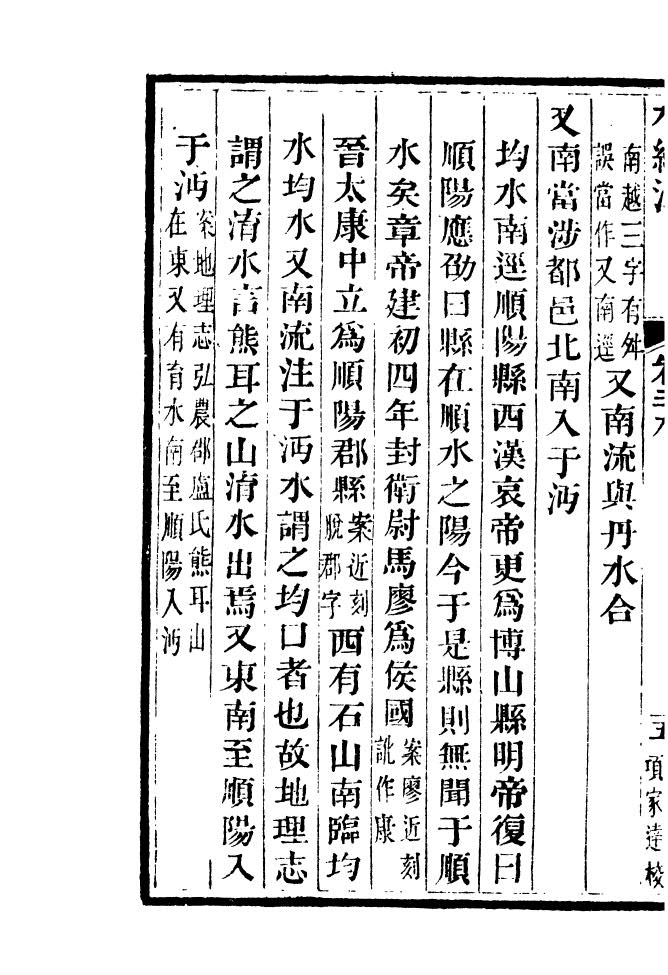 南越三字有舛
誤當作又南逕
又南流與丹水合
又南當涉都邑北南入于沔
均水南逕順陽縣西漢哀帝更爲博山縣明帝復曰
順陽應劭曰縣在順水之陽今于是縣則無聞于順
水矣章帝建初四年封衞尉馬廖爲侯國案廖近刻訛作康
晉太康中立爲順陽郡縣案近刻脫郡字西有石山南臨均
水均水又南流注于沔水謂之均口者也故地理志
謂之淯水言熊耳之山淯水出焉又東南至順陽入
于沔案地理志弘農郡盧氏熊耳山在東又有育水南至順陽入沔
五 項家達校